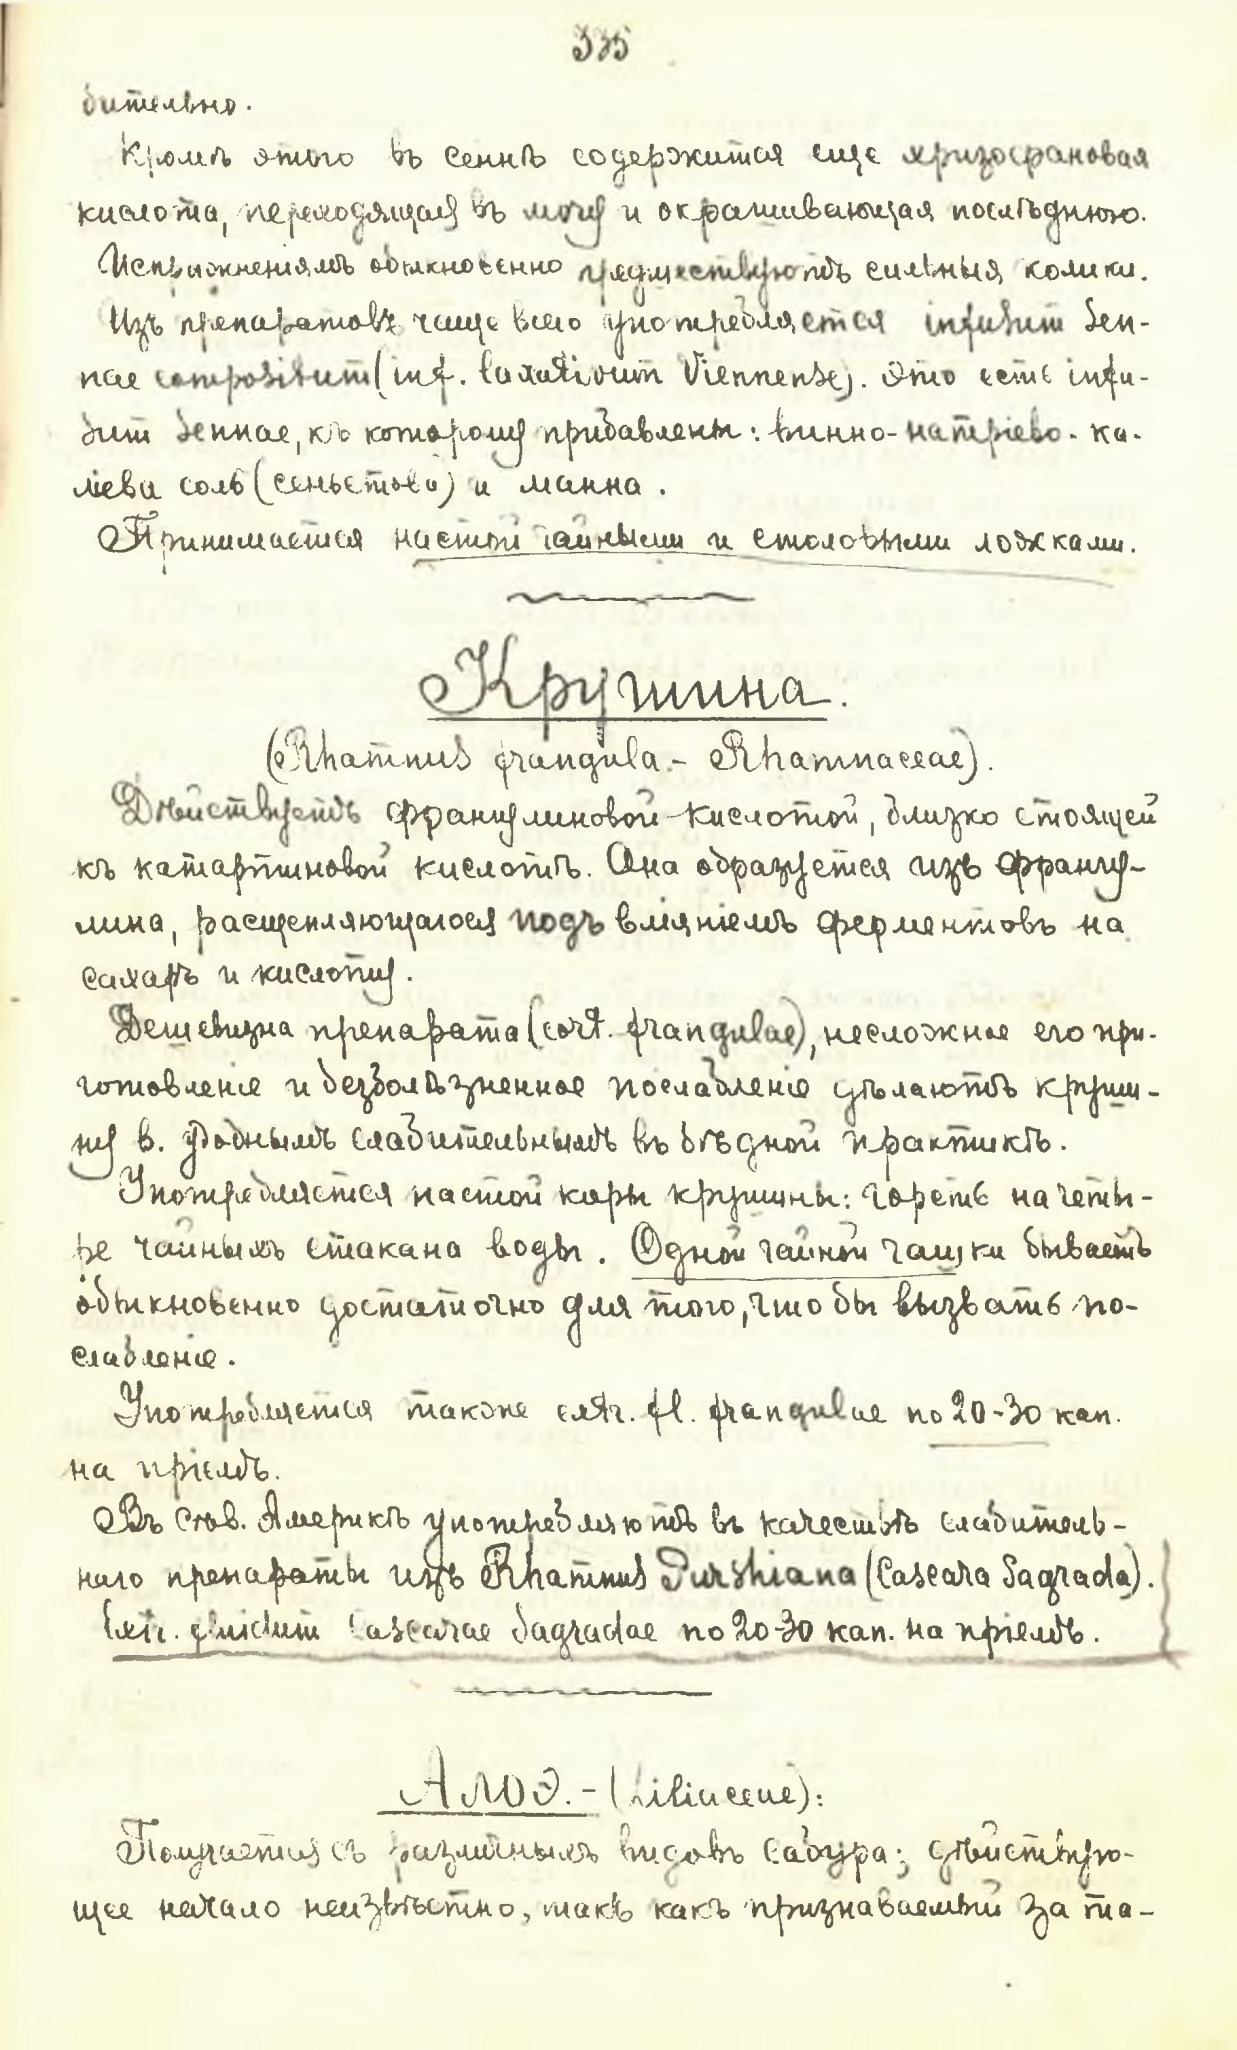 335
бительно.
Кромѣ этого въ сеннѣ содержится еще хризофановая
кислота, переходящая въ мочу и окрашивающая послѣднюю.
Испражненіямъ обыкновенно предшествуютъ сильныя колики.
Изъ препаратовъ чаще всего употребляется infusum Sen-
nae compositum (inf. laxativum Viennense). Это есть infu-
sum Sennae, къ которому прибавлены: винно-натріево-ка-
ліева соль (сеньетова) и манна.
Принимается настой чайными и столовыми ложками.
Крушина.
(Rhamnus frangula. - Rhamnaceae).
Дѣйствуетъ франгулиновой кислотой, близко стоящей
къ катартиновой кислотѣ. Она образуется изъ франгу-
лина, расщепляющагося подъ вліяніемъ ферментовъ на
сахаръ и кислоту.
Дешевизна препарата (cort. frangulae), несложное его при-
готовленіе и безболѣзненное послабленіе дѣлаютъ круши-
ну в. удобнымъ слабительнымъ въ бѣдной практикѣ.
Употребляется настой коры крушины: горсть на четы-
ре чайныхъ стакана воды. Одной чайной чашки бываетъ
обыкновенно достаточно для того, что бы вызвать по-
слабленіе.
Употребляется также extr. fl. frangulae по 20-30 кап.
на пріемъ.
Въ Сѣв. Америкѣ употребляютъ въ качествѣ слабитель-
наго препараты изъ Rhamnus Purshiana (Cascara Sagrada).
Extr. fluidum Cascarae Sagradae по 20-30 кап. на пріемъ.
Алоэ. - (Liliaceae):
Получается съ различныхъ видовъ сабура; дѣйствую-
щее начало неизвѣстно, такъ какъ признаваемый за та-